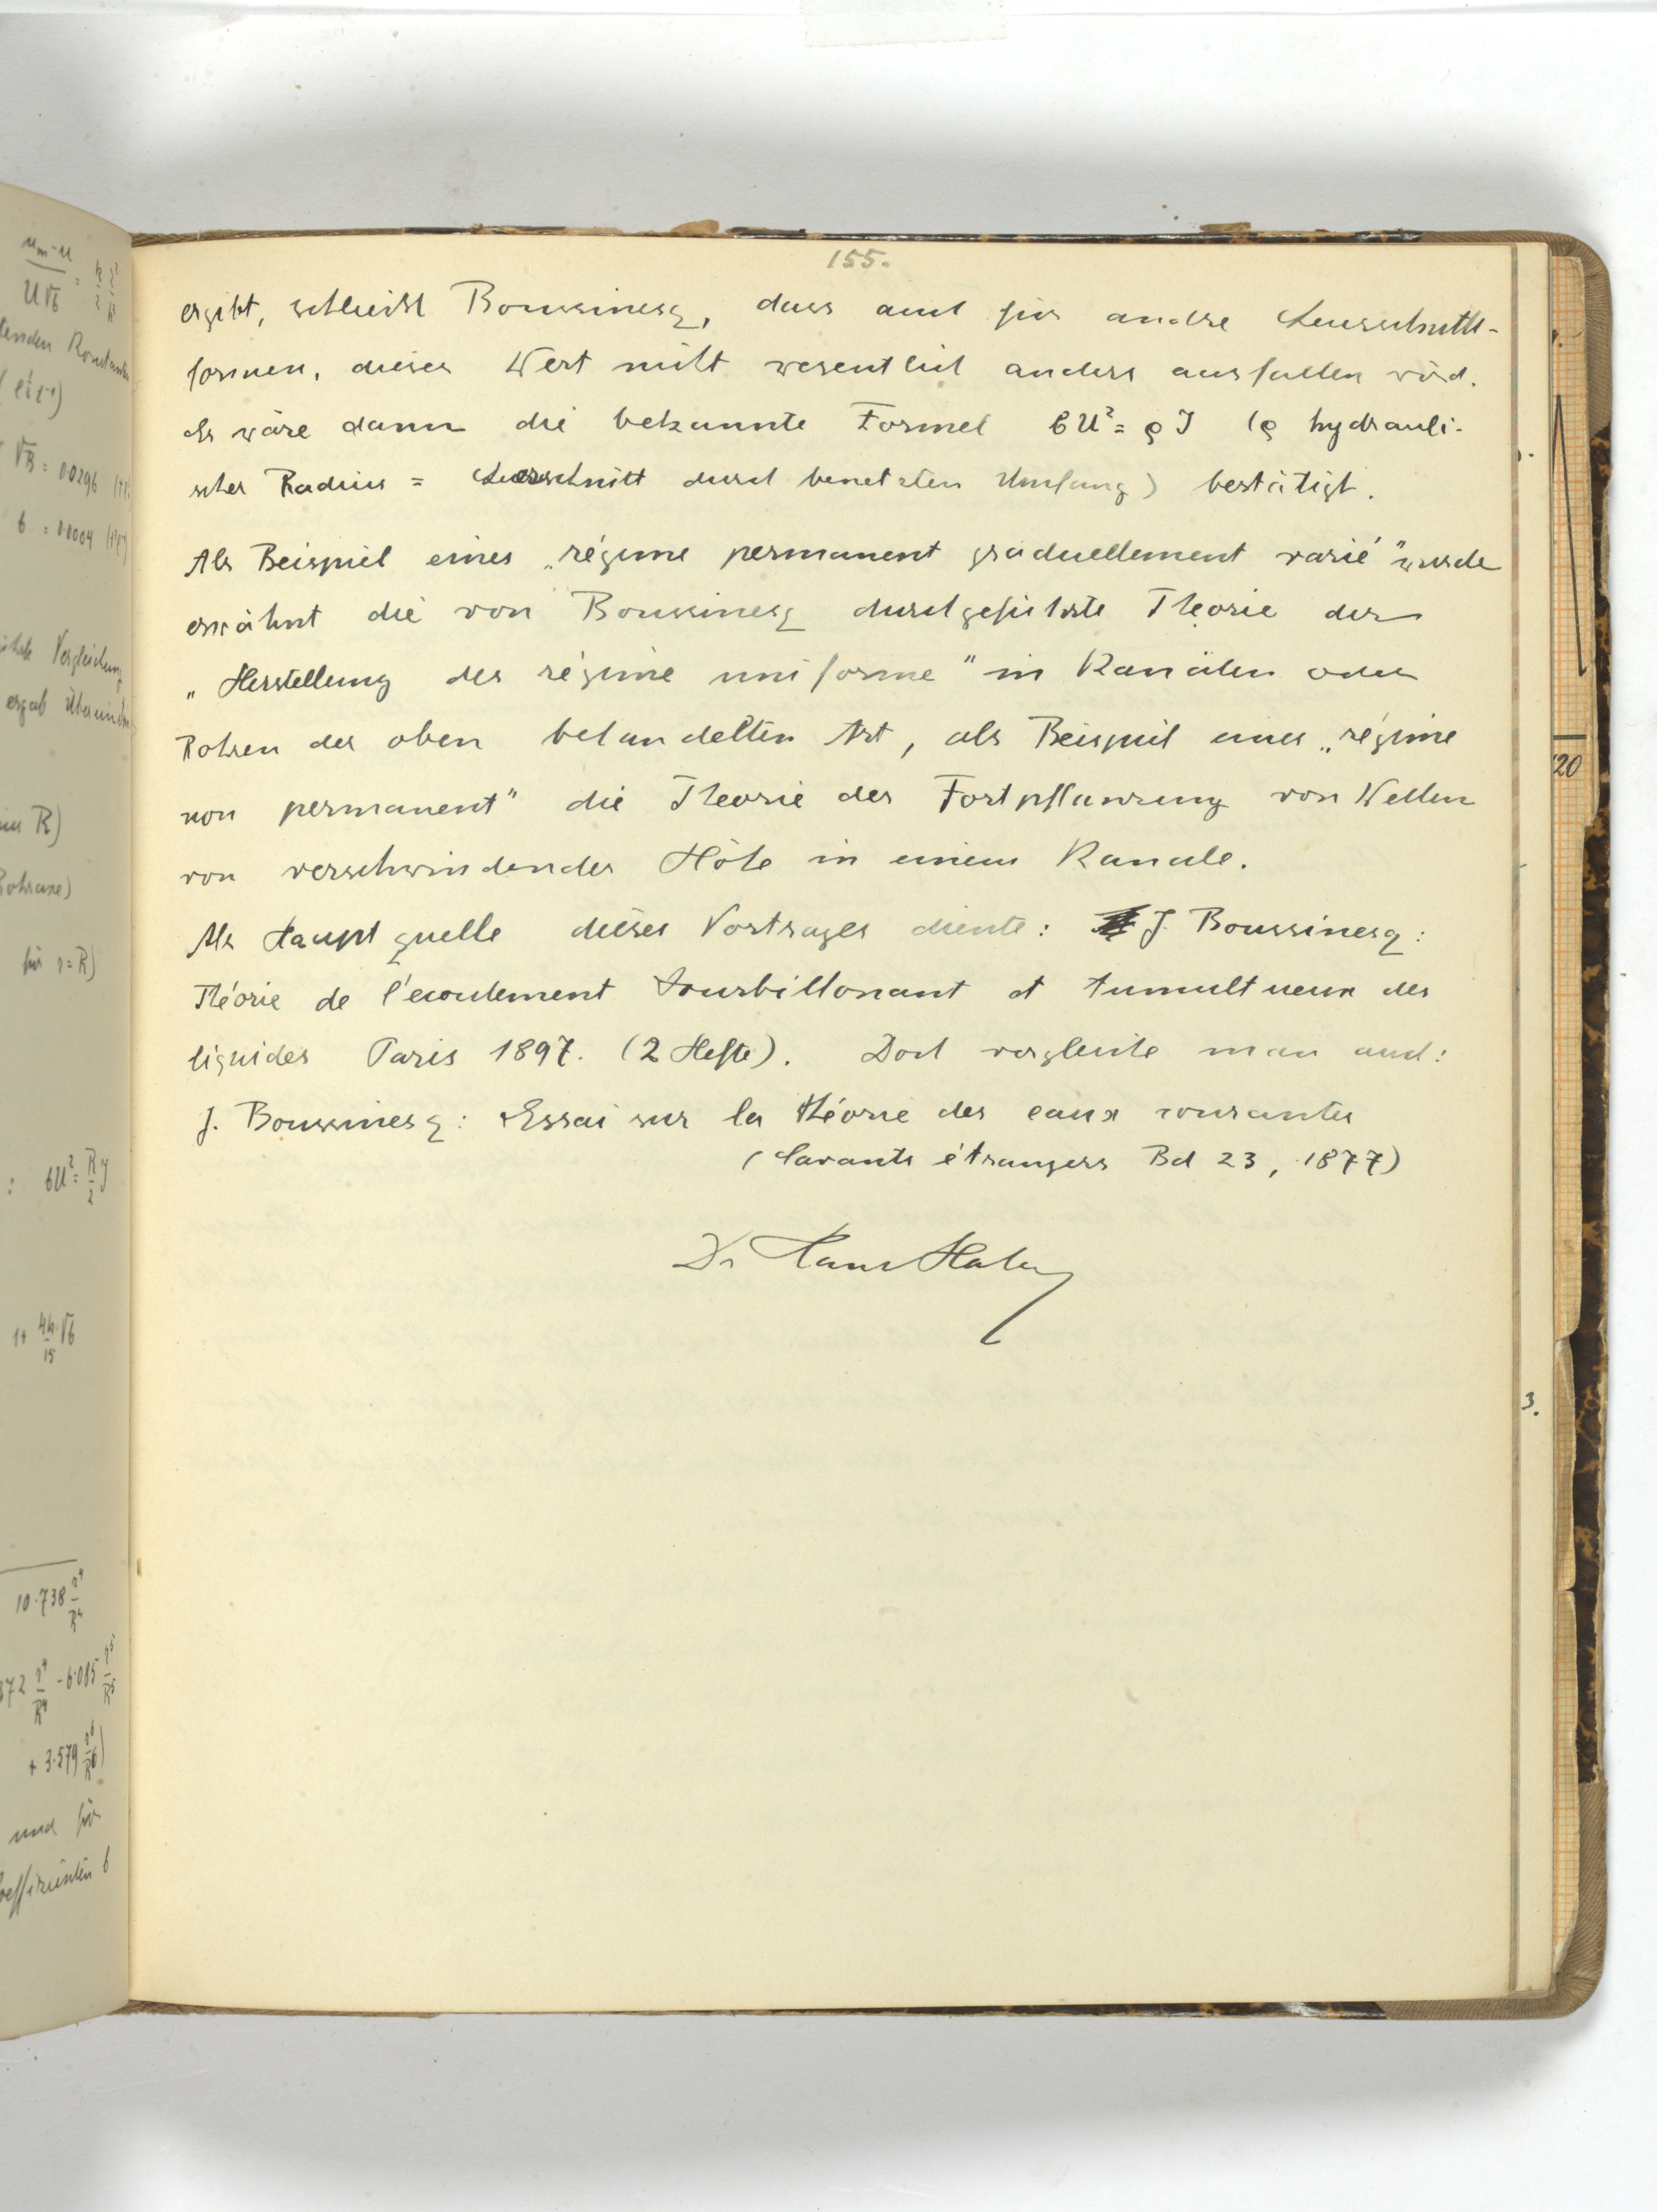 155.
ergibt, schließt Boussinesq, dass auch für andre Querschnitts-
formen, dieser Wert nicht wesentlich anders ausfallen wird.
Es wäre dann die bekannte Formel bU² = ϱ J (ϱ hydrauli-
scher Radius = Querschnitt durch benetzten Umfang) bestätigt.
Als Beispiel eines „régime permanent graduellement varié" wurde
erwähnt die von Boussinesq durchgeführte Theorie der
„Herstellung des régime uniforme" in Kanälen oder
Rohren der oben behandelten Art, als Beispiel eines „régime
non permanent" die Theorie der Fortpflanzung von Wellen
von verschwindender Höhe in einem Kanale.
Als Hauptquelle dieses Vortrages diente: J. Boussinesq:
Théorie de l'écoulement tourbillonant et tumultueux des
liquides Paris 1897. (2 Hefte). Doch vergleiche man auch:
J. Boussinesq: Essai sur la théorie des eaux courantes
(Savants étrangers Bd 23, 1877)
Dr Hans Hahn
u_m-u
U√b
tenden Konstanten
√B = 0.0296
b = 0.0004
Vergleichung
ergab
R)
Rohraxe)
für r=R)
: bU² = R/2 J
1+ 4k/15 √b
10.738 r⁴/R⁴
372 r⁴/R⁴ - 6.085 r⁵/R⁵
+ 3.579 r⁶/R⁶)
und für
oeffizienten b
20
3.